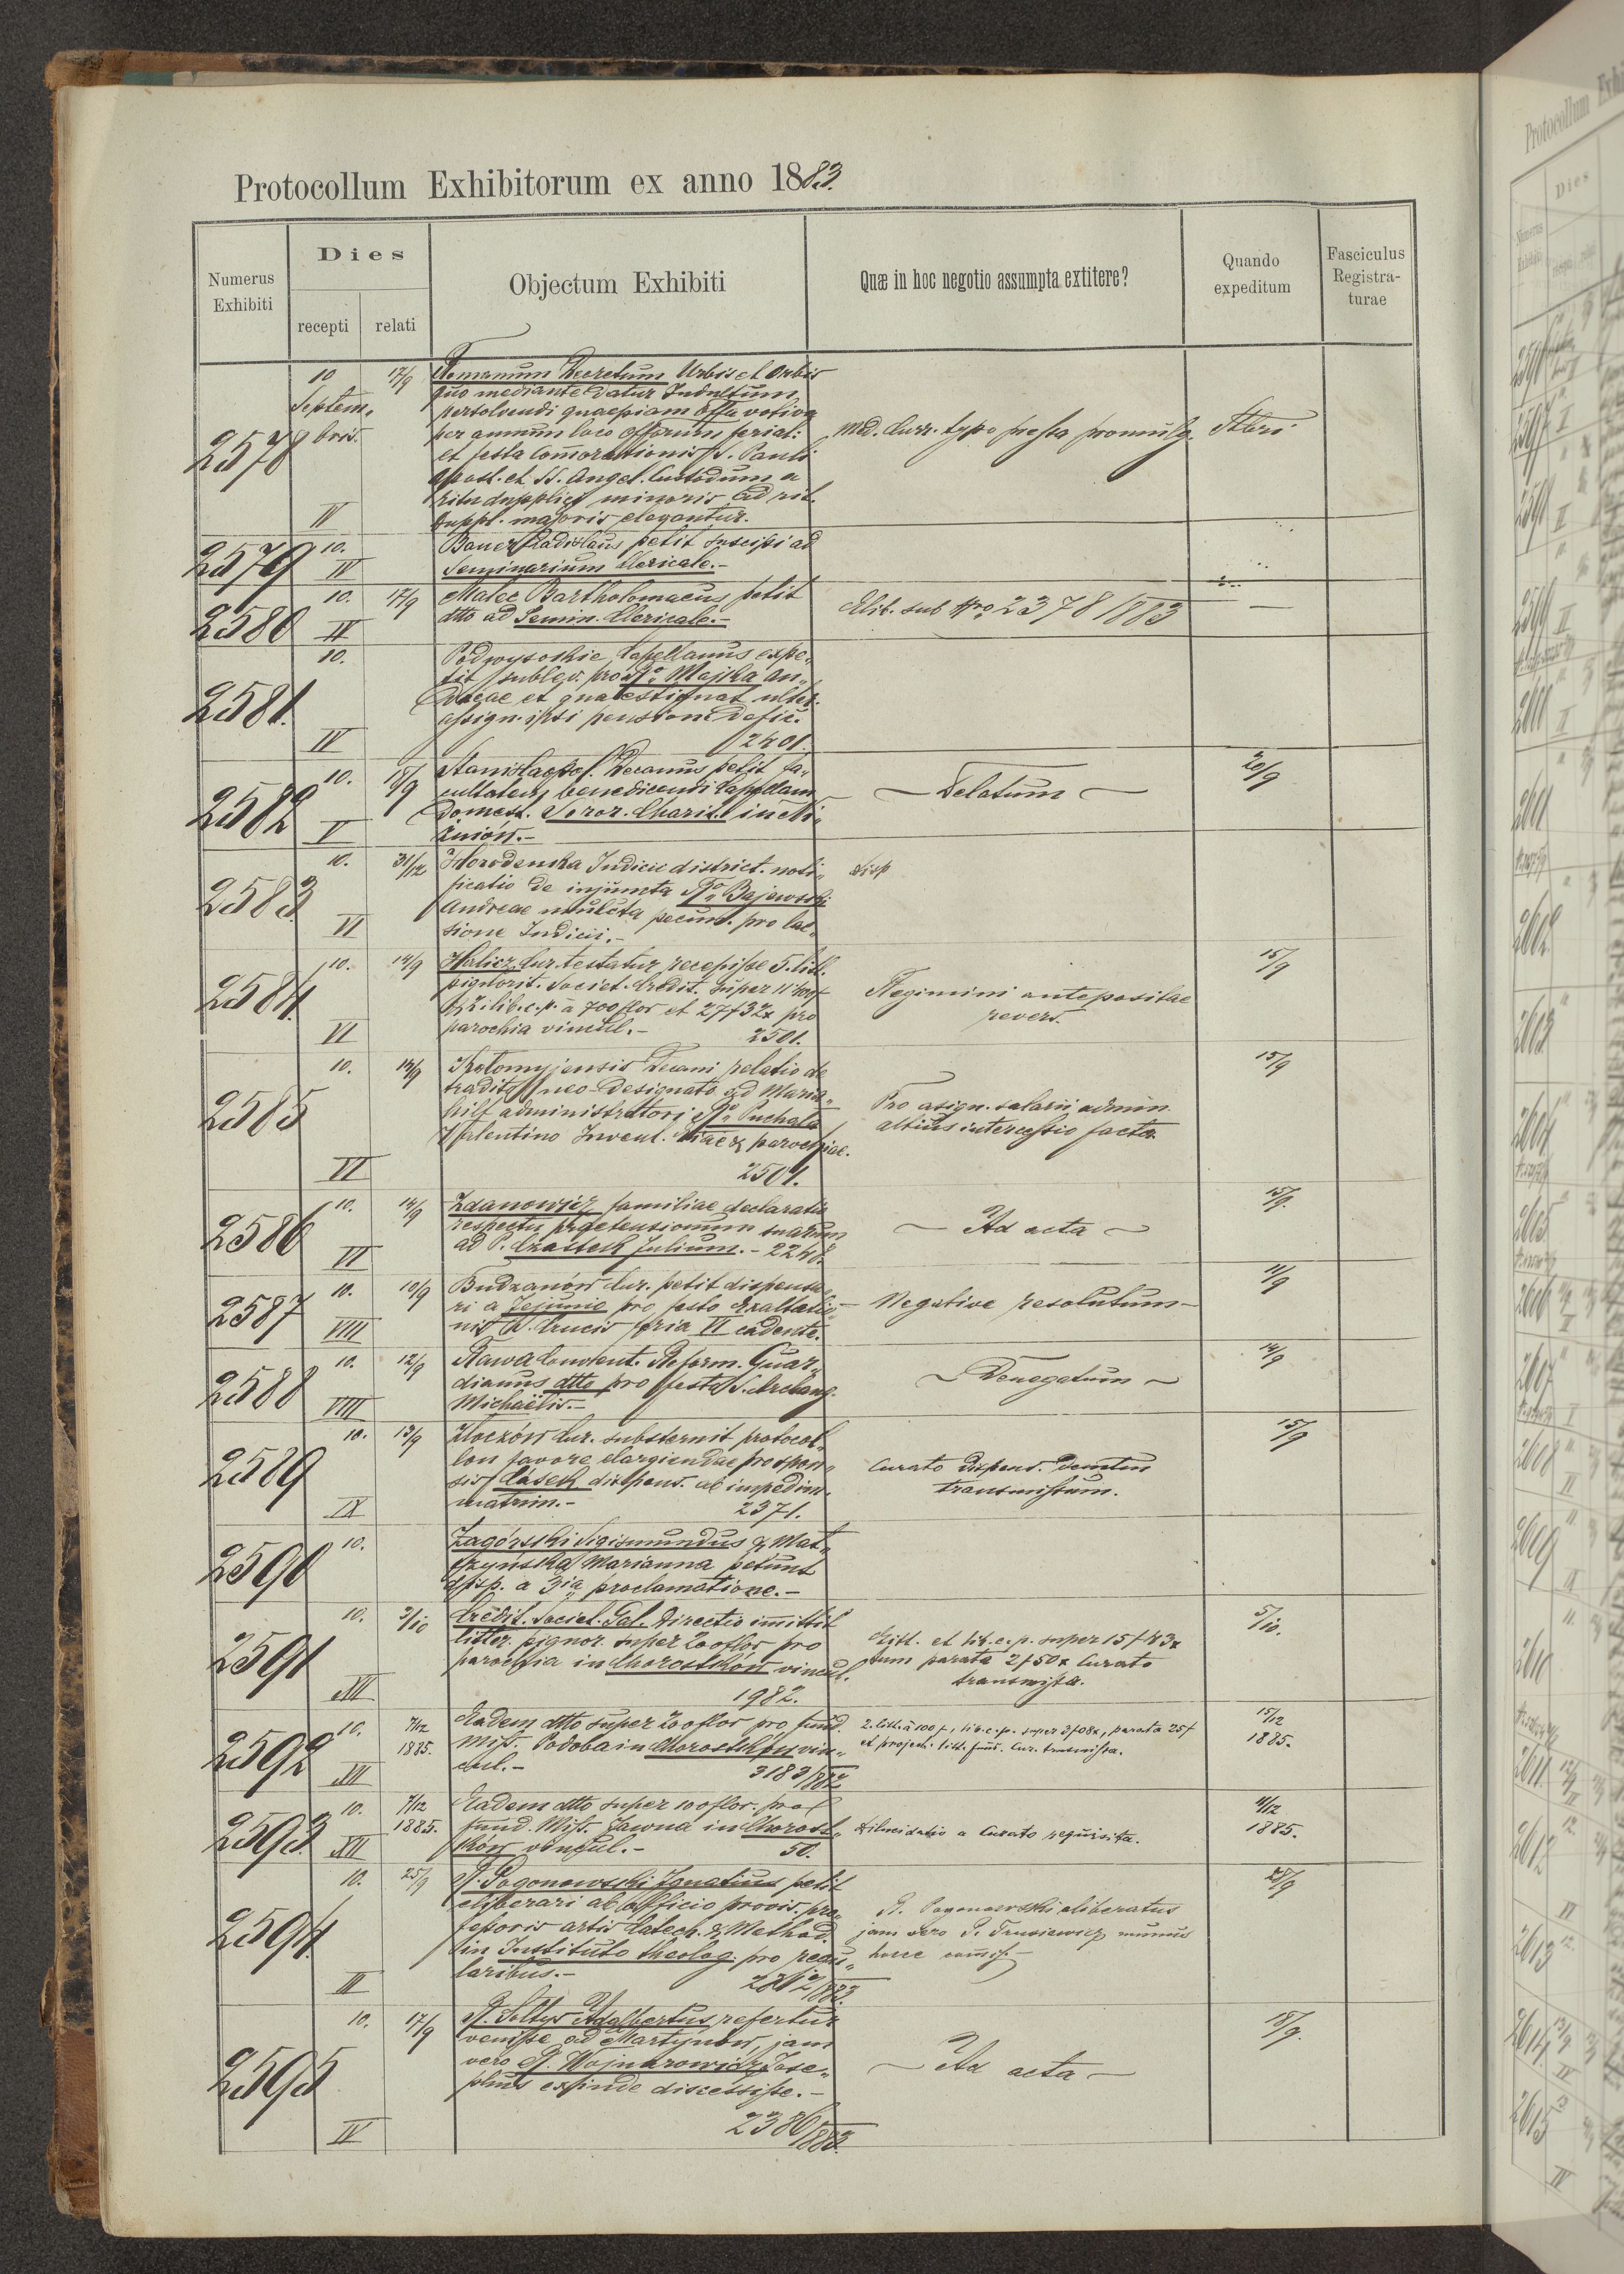 Protocollum Exhibitorum ex anno 1883.
Numerus Exhibiti
Dies
recepti
relati
Objectum Exhibiti
Quæ in hoc negotio assumpta extitere?
Quando expeditum
Fasciculus Registra-
turae
2578
10 Septem„
bris.
IV
17/9
Romanum Decretum Urbis et Orbis
quo mediante datur Indultum
persolvendi quaepiam offa votiva
per annum loco offorum ferial:
et festa Comorationis S. Pauli
Apost. et SS. Angel. Custodum a
ritu dupplici minoris ad rit.
duppl. majoris elegantur.
med. Curr. typo
2579
10.
IV
Bauer Ladislaus petit suscipi ad
Seminarium Clericale.-
2580
10.
IV
17/9
Malec Bartholomaeus petit
dtto ad Semin. Clericale.-
Elib. sub Nro 2378/883
2581.
10.
IV
Podwysokie Capellanus expe„
tit sublev. pro Majka An„
dreae et
assign. ipsi pensione defic.
2401.
2582
10.
V
18/9
Stanislaopol. Decanus petit fa„
cultatem benedicendi Capellam
Domest. Soror. Charit. in
Delatum
20/9
2583.
10.
VI
31/12
Horodenka Judicii district. noti„
ficatio de injuncta Bajewski
Andreae mulcta pecun. pro lae„
sione Judicii.-
Disp
2584.
10.
VI
14/9
Halicz Cur. testatur recepisse 5. litt.
pignorit. Societ. Credit. super
lib. c. p. à 700 flor et 27f32x pro
parochia vincul.-
2501.
Regimini antepositae
revers.
15/9
2585
10.
VI
14/9
Kolomyjensis Decani relatio de
tradito neo-designato ad Maria„
hilf administratori Puchala
Valentino Invent. parochiae.
2501.
Pro asign. salarii admin.
altius intercessio facta.
15/9
2586
10.
VI
14/9
Zdanowicz familiae declaratio
respectu praetensionum suarum
ad P. Czastek Julium.- 2248.
Ad acta
15/9.
2587
10.
VIII
10/9
Budzanów Cur. petit dispensa„
ri a Jejunio pro festo Exaltatio„
nis S. Crucis feria VI cadente.
Negative resolutum-
11/9
2588
10.
VIII
12/9
Rawa Convent. Reform. Guar„
dianus dtto pro festo S. Archang.
Michaëlis.-
Denegatum
14/9
2589
10.
IX
13/9
Zloczów Cur. substernit protocol„
lon favore elargiendae pro spon„
sis Casek dispens. ab impedim.
matrim.-
2371.
Curato dispens. demtum
transmissum.
15/9
2590
10.
Zagórski Sigismundus & Mat„
czyńska Marianna petunt
disp. a 3ia proclamatione.-
2591
10.
XII
3/10
Credit. Societ. Gal. Directio imittit
litter. pignor. super 200flor pro
parochia in Chorostków vincul.
1982.
Litt. et lib. c. p. super 15f43x
tum parata 2f50x Curato
transmissa.
5/10.
2592
10.
XII
7/12
1885.
Eadem dtto super 200flor pro fund.
Miss. Podoba in Chorostków vin„
cul.-
3183/882
2. litt. à 100f, lib. c. p. super 3f08x, parata 25f
et project. litt. fund. Cur. transmissa.
15/12
1885.
2593
10.
XII
7/12
1885.
Eadem dtto super 100flor. pro
fund. Miss. Jawna in Chorost„
ków vincul.-
50.
Dilucidatio a Curato requisita.
11/12
1885.
2594
10.
III
25/9
R. Pogonowski Ignatius petit
eliberari ab officio provis. pro„
fessoris artis Catech. & Method.
in Instituto theolog. pro regu„
laribus.-
R. Pogonowski eliberatus
jam vero P. Trusiewicz munus
hocce comiss.-
28/9
2595
10.
IV
17/9
R. Soltys Adalbertus refertur
venisse ad Martynów, jam
vero R. Wojnarowicz Jose„
phus exinde discessisse.-
2386/883.
Ad acta
18/9.